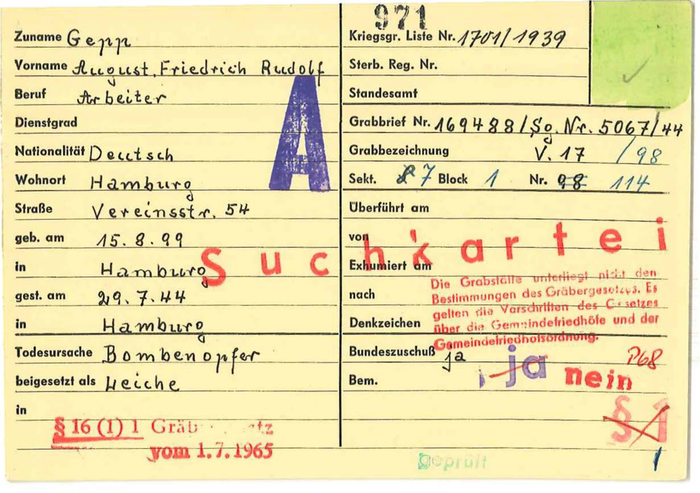 971
Zuname Gepp
Vorname August, Friedrich Rudolf
Beruf Arbeiter
Dienstgrad
Nationalität Deutsch
Wohnort Hamburg
Straße Vereinsstr. 54
geb. am 15.8.99
in Hamburg
gest. am 29.7.44
in Hamburg
Todesursache Bombenopfer
beigesetzt als Leiche
in
§ 16 (1) 1
vom 1.7.1965
A
Suchkartei
Kriegsgr. Liste Nr. 1701/1939
Sterb. Reg. Nr.
Standesamt
Grabbrief Nr. 169488/Sg. Nr. 5067/44
Grabbezeichnung V. 17 /98
Sekt. 7 Block 1 Nr. 98 114
Überführt am
von
Exhumiert am
nach
Denkzeichen
Die Grabstätte unterliegt nicht den
Bestimmungen des Gräbergesetzes. Es
gelten die Vorschriften des Gesetzes
über die Gemeindefriedhöfe und der
Gemeindefriedhofsordnung.
Bundeszuschuß ja
P68
Bem. ja nein
§ 1
1
geprüft